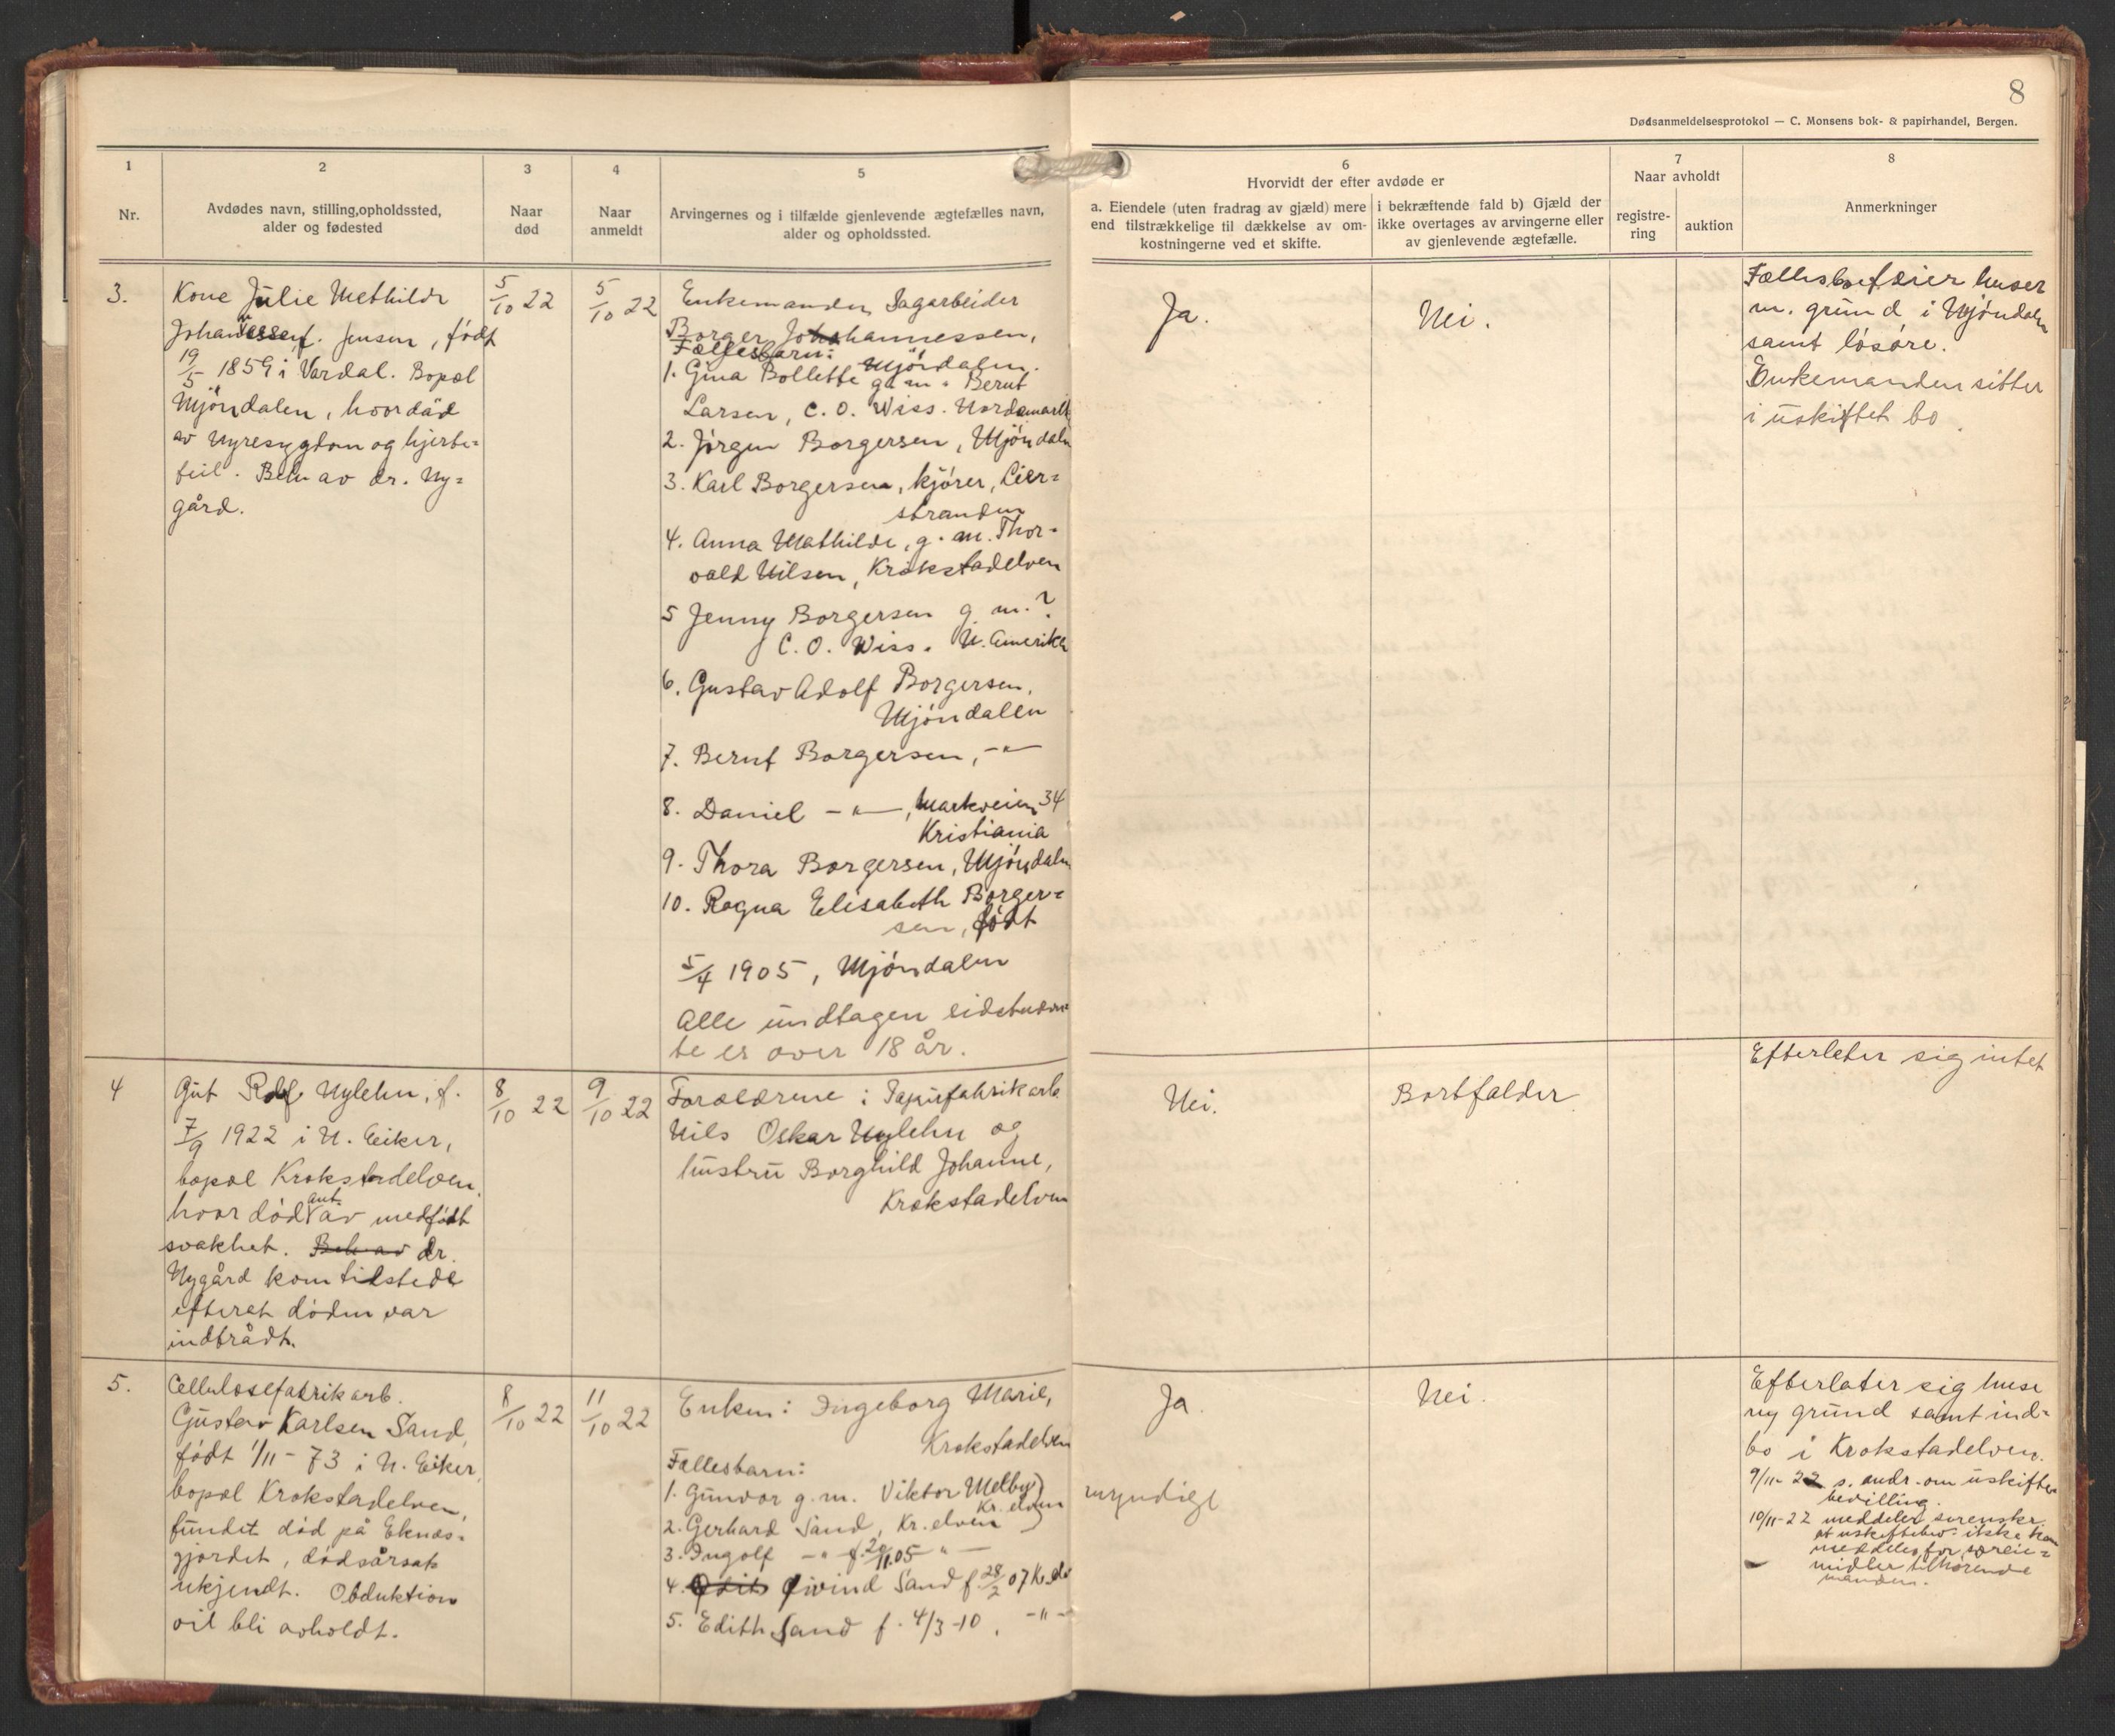 8
Dødsanmeldelsesprotokol — C. Monsens bok- & papirhandel, Bergen.
1
Nr.
2
Avdødes navn, stilling, opholdssted,
alder og fødested
3
Naar
død
4
Naar
anmeldt
5
Arvingernes og i tilfælde gjenlevende ægtefælles navn,
alder og opholdssted.
6
Hvorvidt der efter avdøde er
a. Eiendele (uten fradrag av gjæld) mere
end tilstrækkelige til dækkelse av om-
kostningerne ved et skifte.
i bekræftende fald b) Gjæld der
ikke overtages av arvingerne eller
av gjenlevende ægtefælle.
7
Naar avholdt
registre-
ring
auktion
8
Anmerkninger
3.
Kone Julie Methilde
Johannessen f. Jensen, født
19/5 1859 i Vardal. Bopæl
Mjöndalen, hvor död
av Nyresygdom og hjerte=
feil. Beh av dr. Ny=
gård.
5/10 22
5/10 22
Enkemanden Sagarbeider
Borger Johannessen,
Mjöndalen.
Fællesbarn:
1. Gina Bollette g. m. Bernt
Larsen, C. O. Wiss. Nordamerik
2. Jörgen Borgersen, Mjöndalen
3. Karl Borgersen, kjörer, Lier=
stranden
4. Anna Mathilde, g. m. Thor-
vald Nilsen, Krokstadelven
5 Jenny Borgersen g m. ?
C. O. Wiss. N. Amerika
6. Gustav Adolf Borgersen,
Mjöndalen
7. Bernt Borgersen, -"-
8. Daniel -"-, Markveien 34
Kristiania
9. Thora Borgersen, Mjöndalen
10. Ragna Elisabeth Borger=
sen, født
5/4 1905, Mjöndalen
Alle undtagen sidstnævn=
te er over 18 år.
Ja.
Nei.
Fællesboet eier huser
m. grund i Mjöndalen
samt lösöre.
Enkemanden sitter
i uskiftet bo.
4
Gut Rolf Nylehn, f.
7/9 1922 i N. Eiker,
bopæl Krokstadelven,
hvor död ant. av medfödt
svakhet. Beh av dr.
Nygård kom tilstede
efterat döden var
indtrådt.
8/10 22
9/10 22
Forældrene: Papirfabrikarb.
Nils Oskar Nylehn og
hustru Borghild Johanne,
Krokstadelven
Nei.
Bortfalder
Efterlater sig intet
5.
Cellulosefabrikarb.
Gustav Karlsen Sand,
født 1/11 - 73 i N. Eiker,
bopæl Krokstadelven,
fundet död på Eknes=
gjordet, dödsårsak
ukjendt. Obduktion
vil bli avholdt.
8/10 22
11/10 22
Enken: Ingeborg Marie,
Krokstadelven
Fællesbarn:
1. Gunvor g. m. Viktor Melby
Kr. elven
2. Gerhard Sand, Kr. elven
myndige
3. Ingolf -"- f. 20/11.05 "-
4. Edith Øivind Sand f. 28/2 07 Kr. elv
5. Edith Sand f. 4/3-10. -"-
Ja.
Nei.
Efterlater sig huse
ny grund samt ind=
bo i Krokstadelven.
9/11- 22 s. andr. om uskifte
bevilling.
10/11-22 meddeler sorenskr.
at uskiftebev. ikke kan
meddeles for særeie=
midler tilhörende
manden.